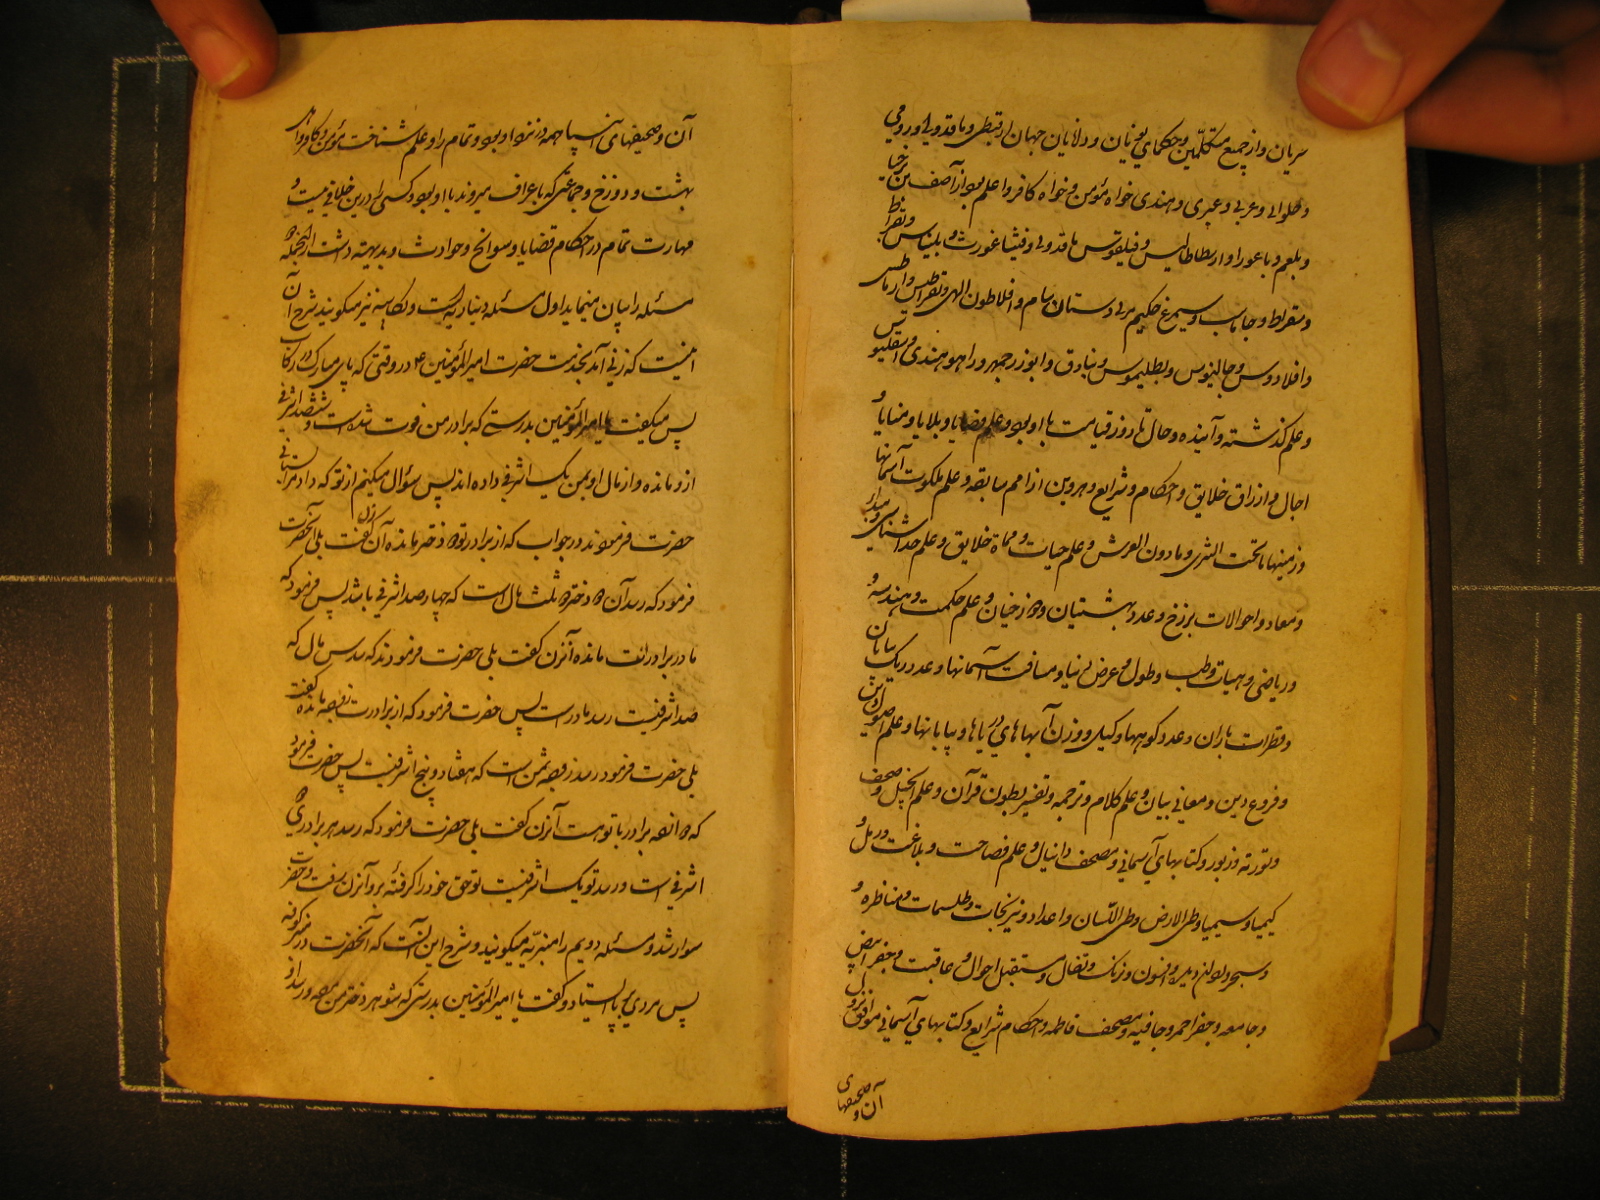 سریان و از جمیع متکلمین و حکمای یونان و دانایان جهان از قبطی و ماقدونی و رومی
و حلوانی و عربی و عبری و هندی خواه مؤمن و خواه کافر و اعلم بود از آصف بن برخیا
و بلعم و باعورا و ارسطاطالیس و فیلقوس ماقدونی و فیثاغورث و بلیناس و بقراط
و سقراط و جاماسب و سیمرغ حکیم مربی دستان سام و افلاطون الهی
و افلادوس و جالینوس و بطلیموس و بنادق و ابوزرجمهر و راهو هندی و اسقلینوس
و علم گذشته و آینده و حال تا روز قیامت با او بود و علم قضایا و بلایا و منایا و
اجال و ارزاق خلایق و احکام و شرایع و هر دین از امم سابقه و علم ملکوت آسمانها
و زمینها ما تحت الثری و ما دون العرش و علم حیات و مماة خلایق و علم خداشناسی و مبدأ
و معاد و احوالات برزخ و عدد بهشتیان و دوزخیان و علم حکمت و هندسه و
و ریاضی و هیات و طب و طول و عرض دنیا و مسافت آسمانها و عدد ریک بیابان
و قطرات باران و عدد کوهها و کیل و وزن آبها های دریاها و بیابانها و علم اصول دین
و فروع دین و معانی بیان و علم کلام و ترجمه و تفسیر بطون قرآن و علم انجیل و صحف
و توریة و زبور و کتابهای آسمانی و مصحف دانیال و علم فصاحت و بلاغت و رمل و
کیمیا و سیمیا و طی الارض و طی اللسان و اعداد و نیرنجات و طلسمات و مناظره و
و افسون و تفال و مستقبل احوال و عاقبت و جفر ابیض
و جامعه و جفر احمر و جافیه و مصحف فاطمه و احکام شرایع و کتابهای آسمانی موافق نزول
آن و صحیفهای
آن و صحیفهای انبیا همه در نزد او بود و تمام را او علم شناخت مؤمن و کافر و اهل
بهشت و دوزخ و جماعتی که باعراف میروند با او بود و کسی را در این خلافی نیست و
مهارت تمام در احکام قضایا و سوانح و حوادث و بدیهیه داشت از آنجمله دو
مسئله را بیان مینماید اول مسئله دیناریه است و رکابیه نیز میکویند شرح آن
اینست که زنی آمد بخدمت حضرت امیرالمؤمنین ع در وقتی که پای مبارک در رکاب
پس میکفت یا امیرالمؤمنین بدرستی که برادر من فوت شده است و ششصد اشرفی
ازو مانده و از مال او بمن یک اشرفی داده اند پس سؤال میکنم از تو که داد مرا بستانی
حضرت فرمودند در جواب که از برادر تو دو دختر مانده آن زن کفت بلی آنحضرت
فرمود که رسد آن دو دختر دو ثلث مال است که چهار صد اشرفی باشد پس فرمود که
مادر برادرت مانده آنزن کفت بلی حضرت فرمودند که سدس مال که
صد اشرفیست رسد مادر است پس حضرت فرمود که از برادرت زوجه مانده کفت
بلی حضرت فرمود رسد زوجه ثمن است که هفتاد و پنج اشرفیست پس حضرت فرمود
که دوازده برادر با تو هست آنزن کفت بلی حضرت فرمود که رسد هر برادری دو
اشرفی است و رسد تو یک اشرفیست تو حق خود را کرفته برو آنزن رفت و حضرت
سوار شد و مسئله دویم را منبریه میکویند و شرح این آنست که آنحضرت در منبر کوفه
پس مردی بپا ایستاد و کفت یا امیرالمؤمنین بدرستی که شوهر دختر من مرده و رسد او